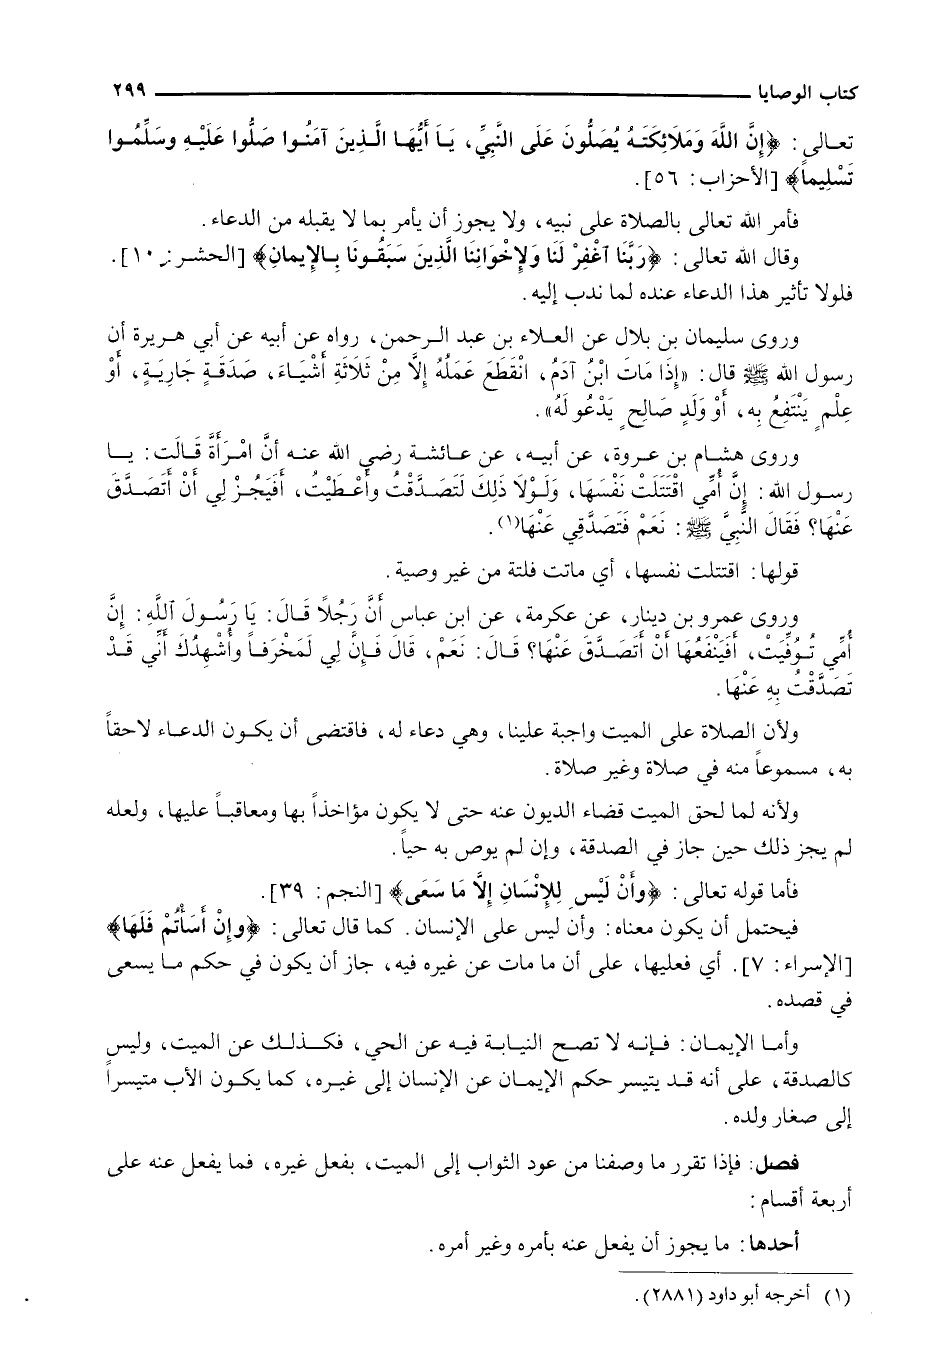 كتاب الوصايا ٢٩٩
تعالى: ﴿إِنَّ اللَّهَ وَمَلَائِكَتَهُ يُصَلُّونَ عَلَى النَّبِيِّ، يَا أَيُّهَا الَّذِينَ آمَنُوا صَلُّوا عَلَيْهِ وسَلِّمُوا
تَسْلِيماً﴾ [الأحزاب: ٥٦].
فأمر الله تعالى بالصلاة على نبيه، ولا يجوز أن يأمر بما لا يقبله من الدعاء.
وقال الله تعالى: ﴿رَبَّنَا آغْفِرْ لَنَا وَلِإخْوَانِنَا الَّذِينَ سَبَقُونَا بِالإِيمانِ﴾ [الحشر: ١٠].
فلولا تأثير هذا الدعاء عنده لما ندب إليه.
وروى سليمان بن بلال عن العلاء بن عبد الرحمن، رواه عن أبيه عن أبي هريرة أن
رسول الله ﷺ قال: «إِذَا مَاتَ ابْنُ آدَمُ، انْقَطَعَ عَمَلُهُ إِلاَّ مِنْ ثَلَاثَةِ أَشْيَاءَ، صَدَقَةٍ جَارِيَةٍ، أَوْ
عِلْمٍ يَنْتَفِعُ بِهِ، أَوْ وَلَدٍ صَالِحٍ يَدْعُو لَهُ».
وروى هشام بن عروة، عن أبيه، عن عائشة رضي الله عنه أنَّ امْرَأَةً قَالَت: يا
رسول الله: إِنَّ أُمِّي اقْتَتَلَتْ نَفْسَهَا، وَلَوْلَا ذَلِكَ لَتَصَدَّقْتُ وأَعْطَيْتُ، أَفَيَجُزْ لِي أَنْ أَتَصَدَّقَ
عَنْهَا؟ فَقَالَ النَّبِيَّ ﷺ: نَعَمْ فَتَصَدَّقِي عَنْهَا(١).
قولها: اقتتلت نفسها، أي ماتت فلتة من غير وصية.
وروى عمرو بن دينار، عن عكرمة، عن ابن عباس أَنَّ رَجُلاً قَالَ: يَا رَسُولَ اللَّهِ: إِنَّ
أُمِّي تُوُفِّيَتْ، أَفَيَنْفَعُهَا أَنْ أَتَصَدَّقَ عَنْهَا؟ قَالَ: نَعَمْ، قَالَ فَإِنَّ لِي لَمَخْرَفاً وأُشْهِدُكَ أَنِّي قَدْ
تَصَدَّقْتُ بِهِ عَنْهَا.
ولأن الصلاة على الميت واجبة علينا، وهي دعاء له، فاقتضى أن يكون الدعاء لاحقاً
به، مسموعاً منه في صلاة وغير صلاة.
ولأنه لما لحق الميت قضاء الديون عنه حتى لا يكون مؤاخذاً بها ومعاقباً عليها، ولعله
لم يجز ذلك حين جاز في الصدقة، وإن لم يوص به حياً.
فأما قوله تعالى: ﴿وأَنْ لَيْسَ لِلإِنْسَانِ إِلاَّ مَا سَعَى﴾ [النجم: ٣٩].
فيحتمل أن يكون معناه: وأن ليس على الإنسان. كما قال تعالى: ﴿وإِنْ أَسَأْتُمْ فَلَهَا﴾
[الإسراء: ٧]. أي فعليها، على أن ما مات عن غيره فيه، جاز أن يكون في حكم ما يسعى
في قصده.
وأما الإيمان: فإنه لا تصح النيابة فيه عن الحي، فكذلك عن الميت، وليس
كالصدقة، على أنه قد يتيسر حكم الإيمان عن الإنسان إلى غيره، كما يكون الأب متيسراً
إلى صغار ولده.
فصل: فإذا تقرر ما وصفنا من عود الثواب إلى الميت، بفعل غيره، فما يفعل عنه على
أربعة أقسام:
أحدها: ما يجوز أن يفعل عنه بأمره وغير أمره.
(١) أخرجه أبو داود (٢٨٨١).